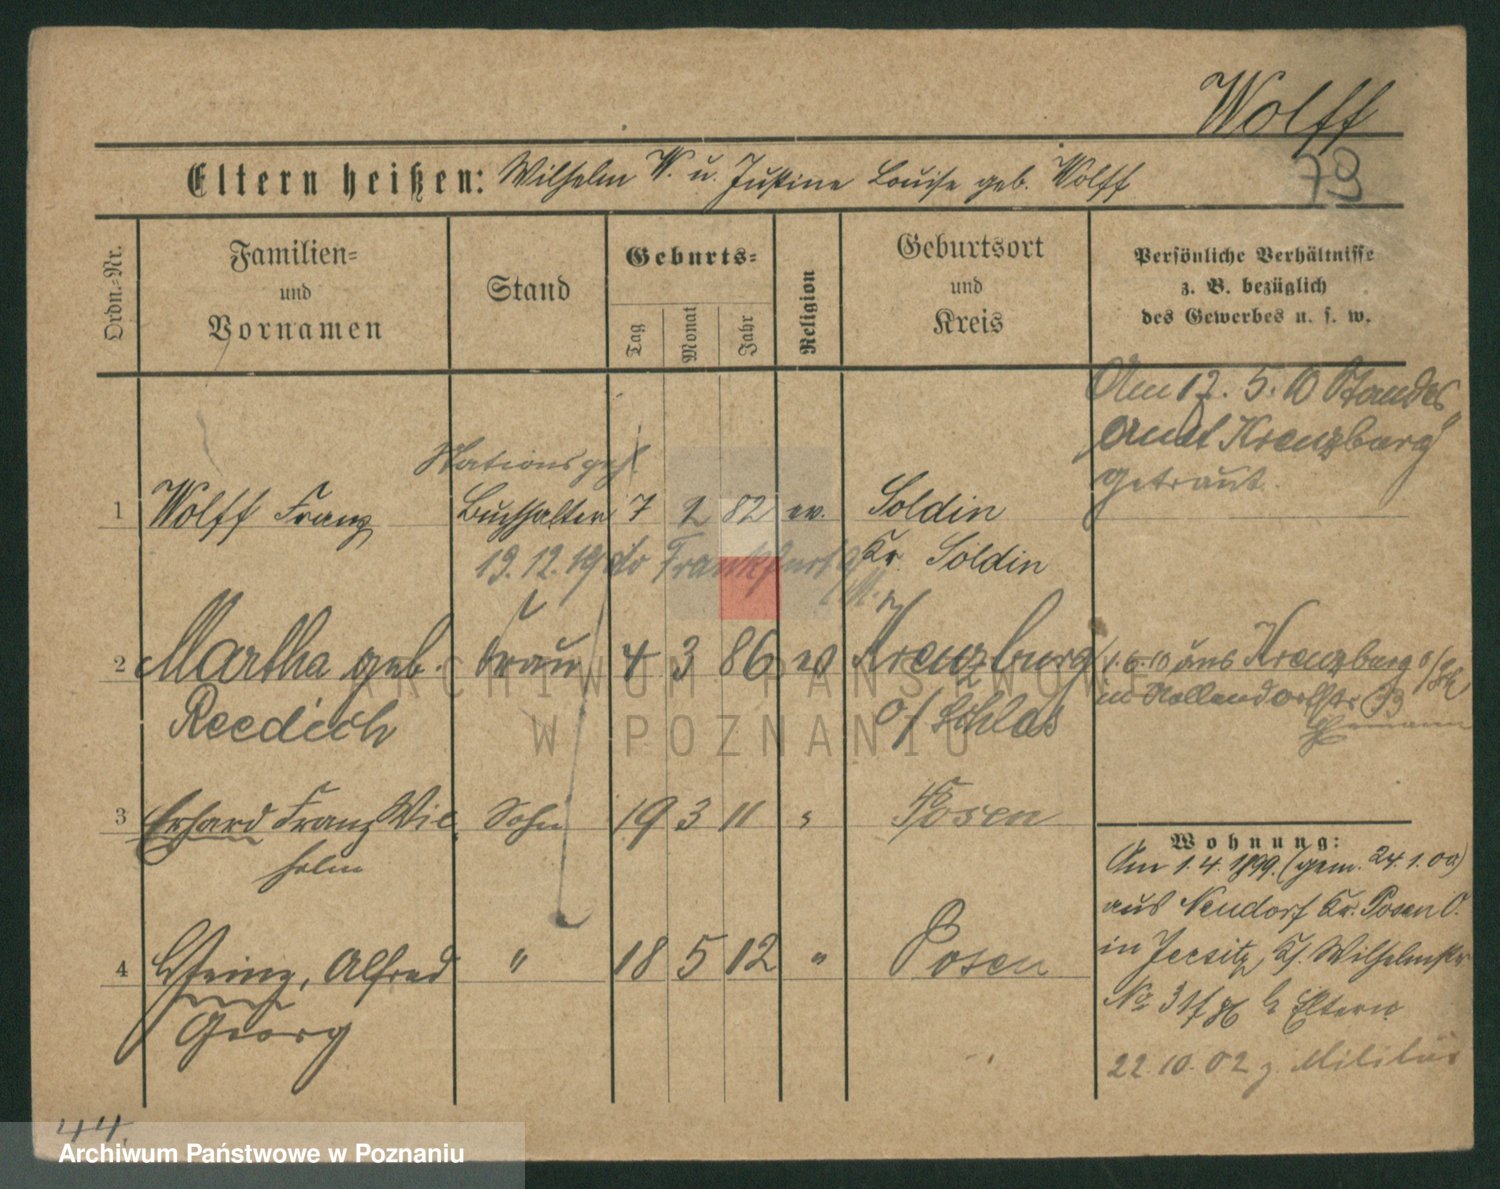 Wolff
73
Eltern heißen: Wilhelm W. u. Justine Louise geb. Wolff
Ordn.-Nr.
Familien- und Vornamen
Stand
Geburts-
Tag
Monat
Jahr
Religion
Geburtsort und Kreis
Persönliche Verhältnisse
z. B. bezüglich
des Gewerbes u. s. w.
Am 12. 5. 10 Standes
Amt Kreuzburg
getraut.
Stationsgeh
1 Wolff Franz Buchhalter 7 2 82 ev. Soldin
19.12.19 Frankfurt Kr. Soldin
2 Martha geb. Frau 4 3 86 ev Kreuzburg
Reedich O/Schles
1.6.10 aus Kreuzburg O/S
in Nollendorfstr 33
3 Erhard Franz Wil- Sohn 19 3 11 " Posen
helm
4 Heinz, Alfred " 18 5 12 " Posen
Georg
Wohnung:
Am 1.4.1899. (gem. 24.1.00)
aus Neudorf Kr. Posen O.
in Jersitz, Kl. Wilhelmstr
No 31 b Eltern
22.10.02 z Militär
44.
ARCHIWUM PAŃSTWOWE
W POZNANIU
Archiwum Państwowe w Poznaniu